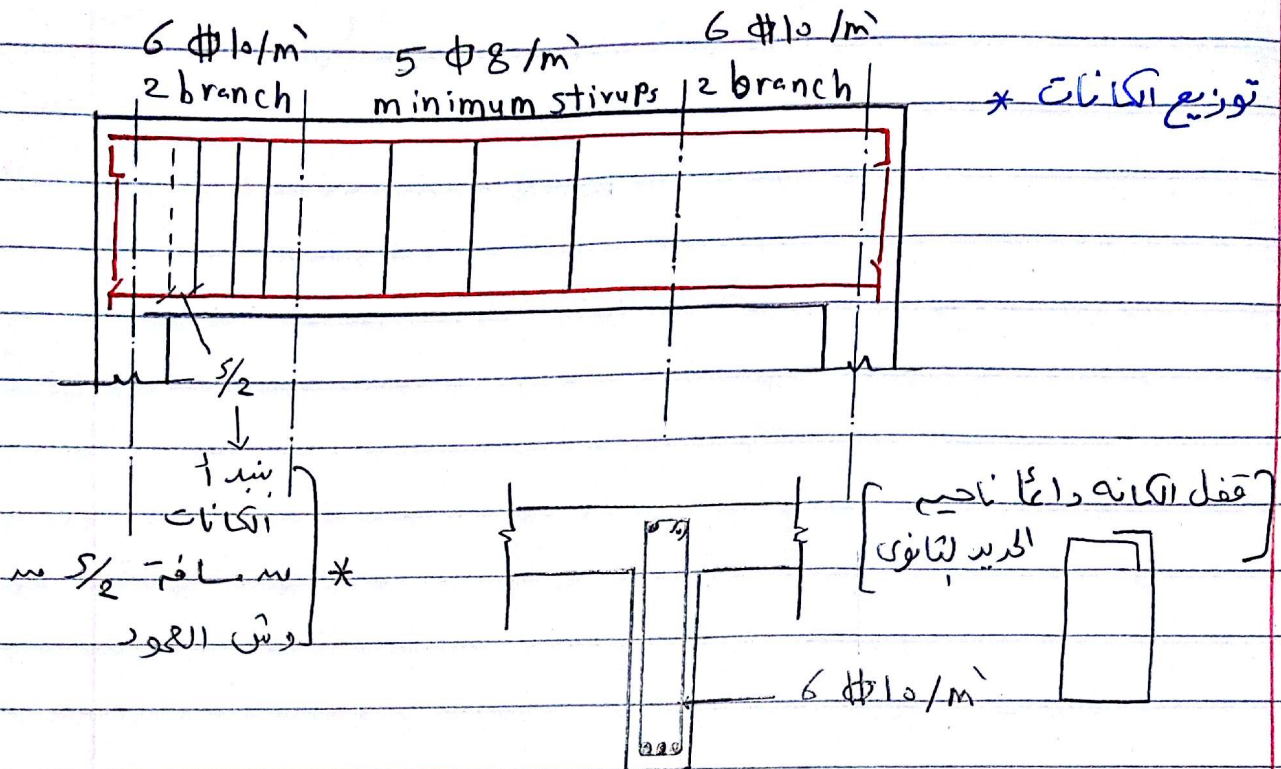 6 ⌽10/m` 5 Φ8/m` 6 ⌽10/m`
2 branch minimum stirups 2 branch
* توزيع الكانات
S/2
بنبدأ
الكانات
* من مسافة S/2 من
وش العمود
قفل الكانه دائمًا ناحيه
الحديد الثانوى
6 ⌽10/m`